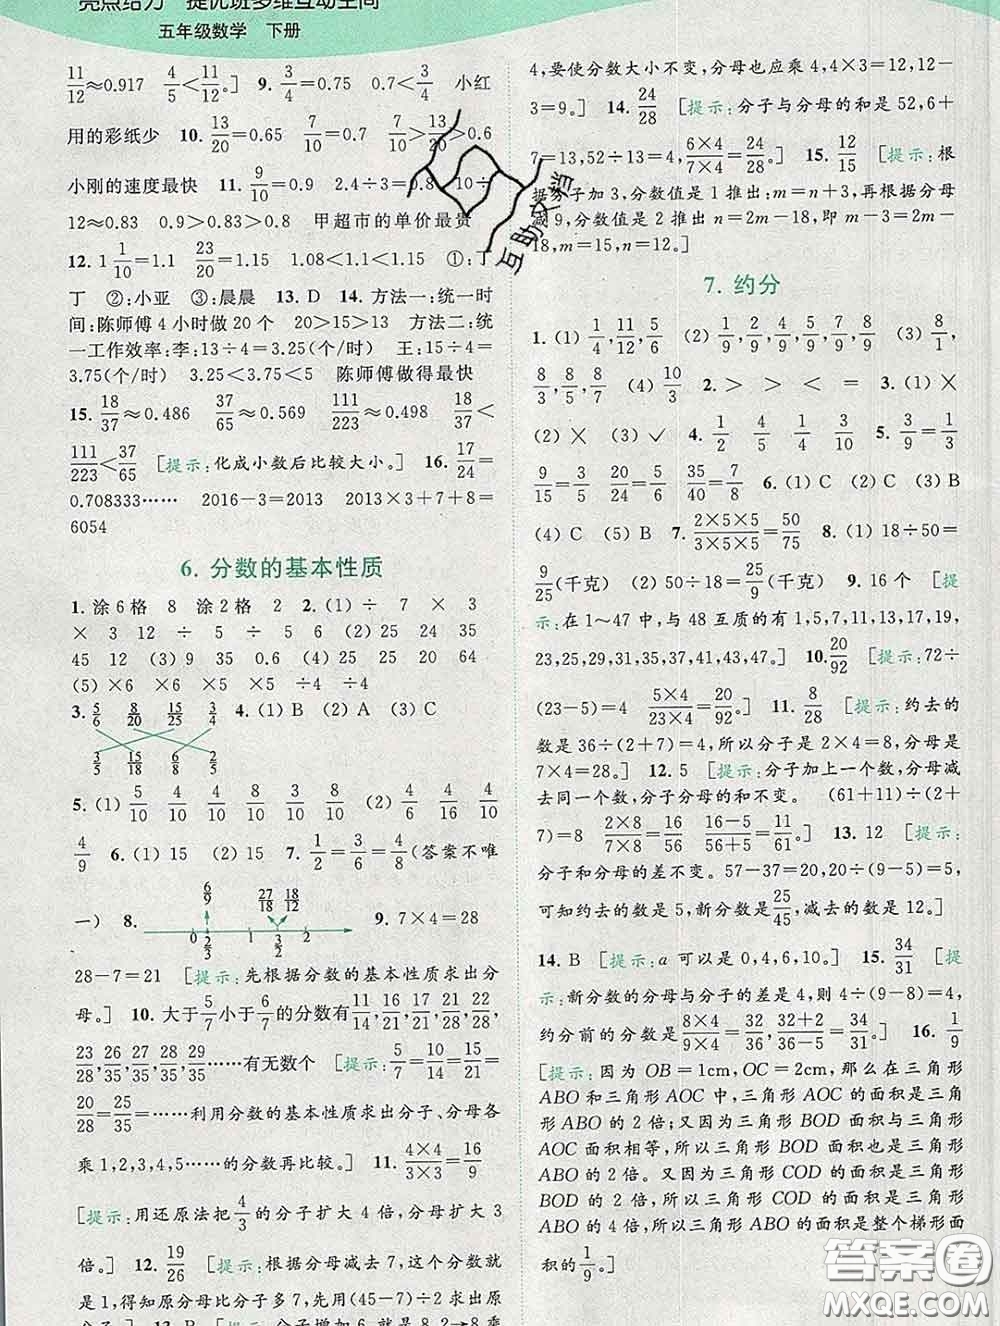 亮点给力 提优班多维互动空间
五年级数学 下册
11/12≈0.917 4/5<11/12] 9. 3/4=0.75 小红
用的彩纸少 10. 13/20=0.65 7/10=0.7 7/10>13/20>0.6
小刚的速度最快 11. 9/10=0.9 2.4÷3=0.8 10÷
12≈0.83 0.9>0.83>0.8 甲超市的单价最贵
12. 1 1/10=1.1 23/20=1.15 1.08<1.1<1.15 ①:丁
丁 ②:小亚 ③:晨晨 13. D 14. 方法一:统一时
间:陈师傅4小时做20个 20>15>13 方法二:统
一工作效率:李:13÷4=3.25(个/时) 王:15÷4=
3.75(个/时) 3.25<3.75<5 陈师傅做得最快
15. 18/37≈0.486 37/65≈0.569 111/223≈0.498 18/37<
111/223<37/65 [提示:化成小数后比较大小。] 16. 17/24=
0.708333…… 2016-3=2013 2013×3+7+8=
6054
6. 分数的基本性质
1. 涂6格 8 涂2格 2 2. (1) ÷ 7 × 3
× 3 12 ÷ 5 ÷ 5 (2) 25 24 35
45 12 (3) 9 35 0.6 (4) 25 25 20 64
(5) ×6 ×6 ×5 ×5 ÷4 ÷4
3. 5/6 8/20 15/25 3/4 4. (1) B (2) A (3) C
3/5 15/18 6/8 2/5
5. (1) 5/10 4/10 8/10 2/10 (2) 4/6 4/12 4/8 4/10
4/9 6. (1) 15 (2) 15 7. 1/2=3/6=4/8(答案不唯
一) 8. 6/9 27/18 18/12 0 2/3 1 3/2 2 9. 7×4=28
28-7=21 [提示:先根据分数的基本性质求出分
母。] 10. 大于5/7小于6/7的分数有11/14,16/21,17/21,21/28,22/28,
23/28,26/35,27/35,28/35,29/35……有无数个 [提示:5/7=10/14=15/21=
20/28=25/35=……利用分数的基本性质求出分子、分母各
乘1,2,3,4,5……的分数再比较。] 11. 4×4/3×3=16/9
[提示:用还原法把4/3的分子扩大4倍,分母扩大3
倍。] 12. 19/26 [提示:根据分母减去7,这个分数就
是1,得知原分母比分子多7,用(45-7)÷2=19
4,要使分数大小不变,分母也应乘4,4×3=12,12-
3=9。] 14. 24/28 [提示:分子与分母的和是52,6+
7=13,52÷13=4,6×4/7×4=24/28。] 15. 12/15 [提示:根
据分子加3,分数值是1推出:m=n+3,再根据分母
减9,分数值是2推出n=2m-18,即m-3=2m-
18,m=15,n=12。]
7. 约分
1. (1) 1/4,11/12,5/6 (2) 1/9,2/9,4/9,5/9,7/9,8/9 (3) 8/1,
8/3,8/5,8/7 (4) 10/3 2. > > < = 3. (1) ×
(2) × (3) ✓ 4. 1/2 4/5 1/4 3/10 5. 3/9=1/3
9/15=3/5 20/24=5/6 35/40=7/8 6. (1) C (2) C (3) C
(4) C (5) B 7. 2×5×5/3×5×5=50/75 8. (1) 18÷50=
9/25(千克) (2) 50÷18=25/9(千克) 9. 16个 [提
示:在1~47中,与48互质的有1,5,7,11,13,17,19,
23,25,29,31,35,37,41,43,47。] 10. 20/92 [提示:72÷
(23-5)=4 5×4/23×4=20/92。] 11. 8/28 [提示:约去的
数是36÷(2+7)=4,所以分子是2×4=8,分母是
7×4=28。] 12. 5 [提示:分子加上一个数,分母减
去同一个数,分子分母的和不变。 (61+11)÷(2+
7)=8 2×8/7×8=16/56 16-5/56+5=11/61。] 13. 12 [提示:
分子和分母的差不变。57-37=20,20÷(9-5)=5,
可知约去的数是5,新分数是25/45,减去的数是12。]
14. B [提示:a可以是0,4,6,10。] 15. 34/31 [提
示:新分数的分母与分子的差是4,则4÷(9-8)=4,
约分前的分数是8×4/9×4=32/36,32+2/36-5=34/31。] 16. 1/9
[提示:因为OB=1cm,OC=2cm,那么在三角形
ABO和三角形AOC中,三角形AOC的面积是三角
形ABO的2倍;又因为三角形BOD面积与三角形
AOC面积相等,所以三角形BOD面积也是三角形
ABO的2倍。又因为三角形COD的面积是三角形
BOD的2倍,所以三角形COD的面积是三角形
ABO的4倍,所以三角形ABO的面积是整个梯形面
积的1/9。]
互助文档
答案圈
MXQE.COM